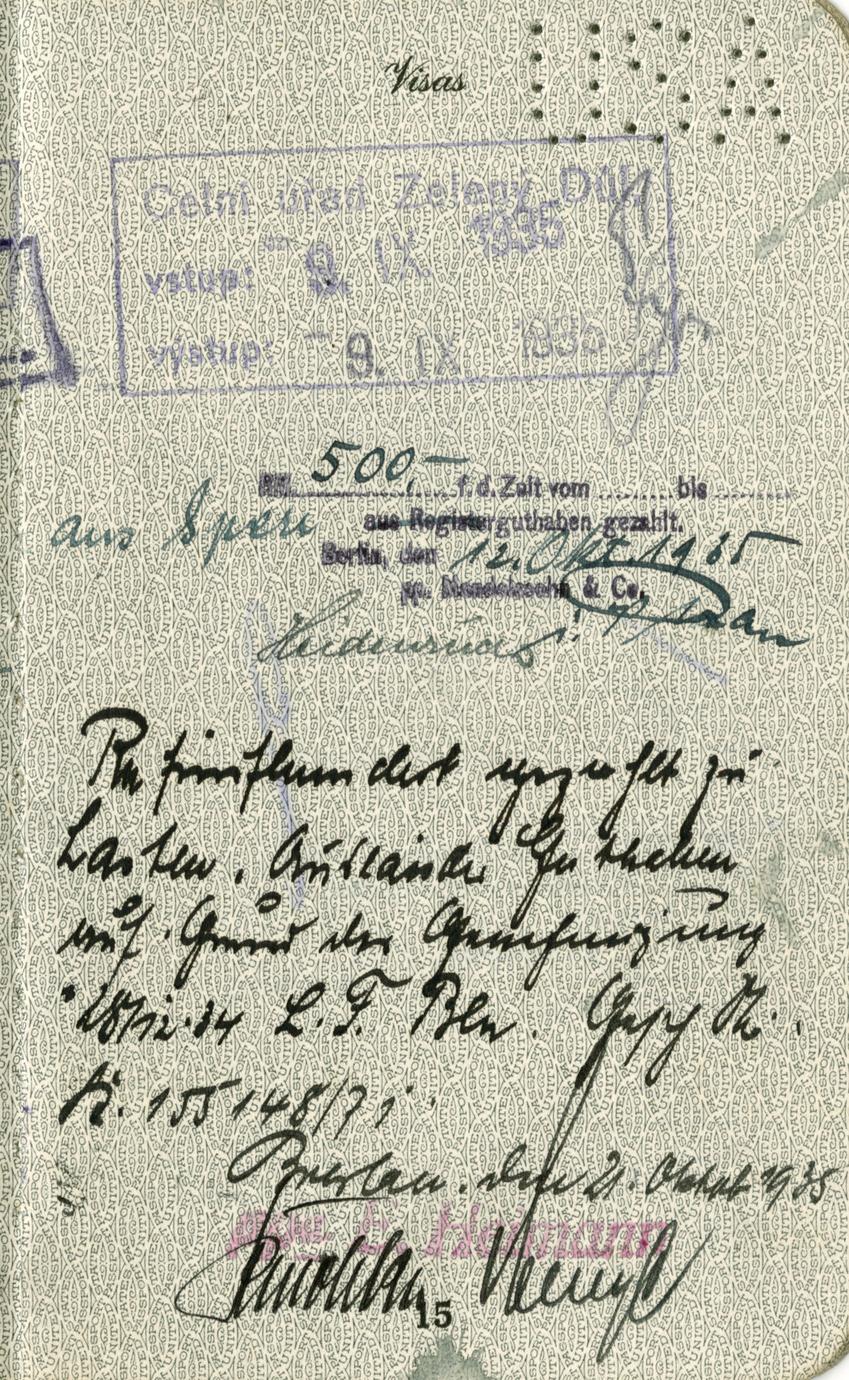 Visas
USA
Celní úřad Zelený Důl
vstup: 9. IX 1935
výstup: 9. IX 1935
RM. 500,- f. d. Zeit vom ........ bis ........
aus Sperr aus Registerguthaben gezahlt.
Berlin, den 12. Okt. 1935
pp. Mendelssohn & Co.
Rm fünfhundert gezahlt zu
Lasten Ausländer Guthaben
auf Grund der Genehmigung
18/12.34 L. F. Bln. Gesch Nr.
155148/71
Breslau. den 21. Oktob 1935
E. Heimann
15